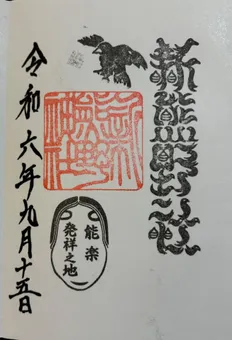 新熊野神社
能楽
発祥之地
令和六年九月十五日